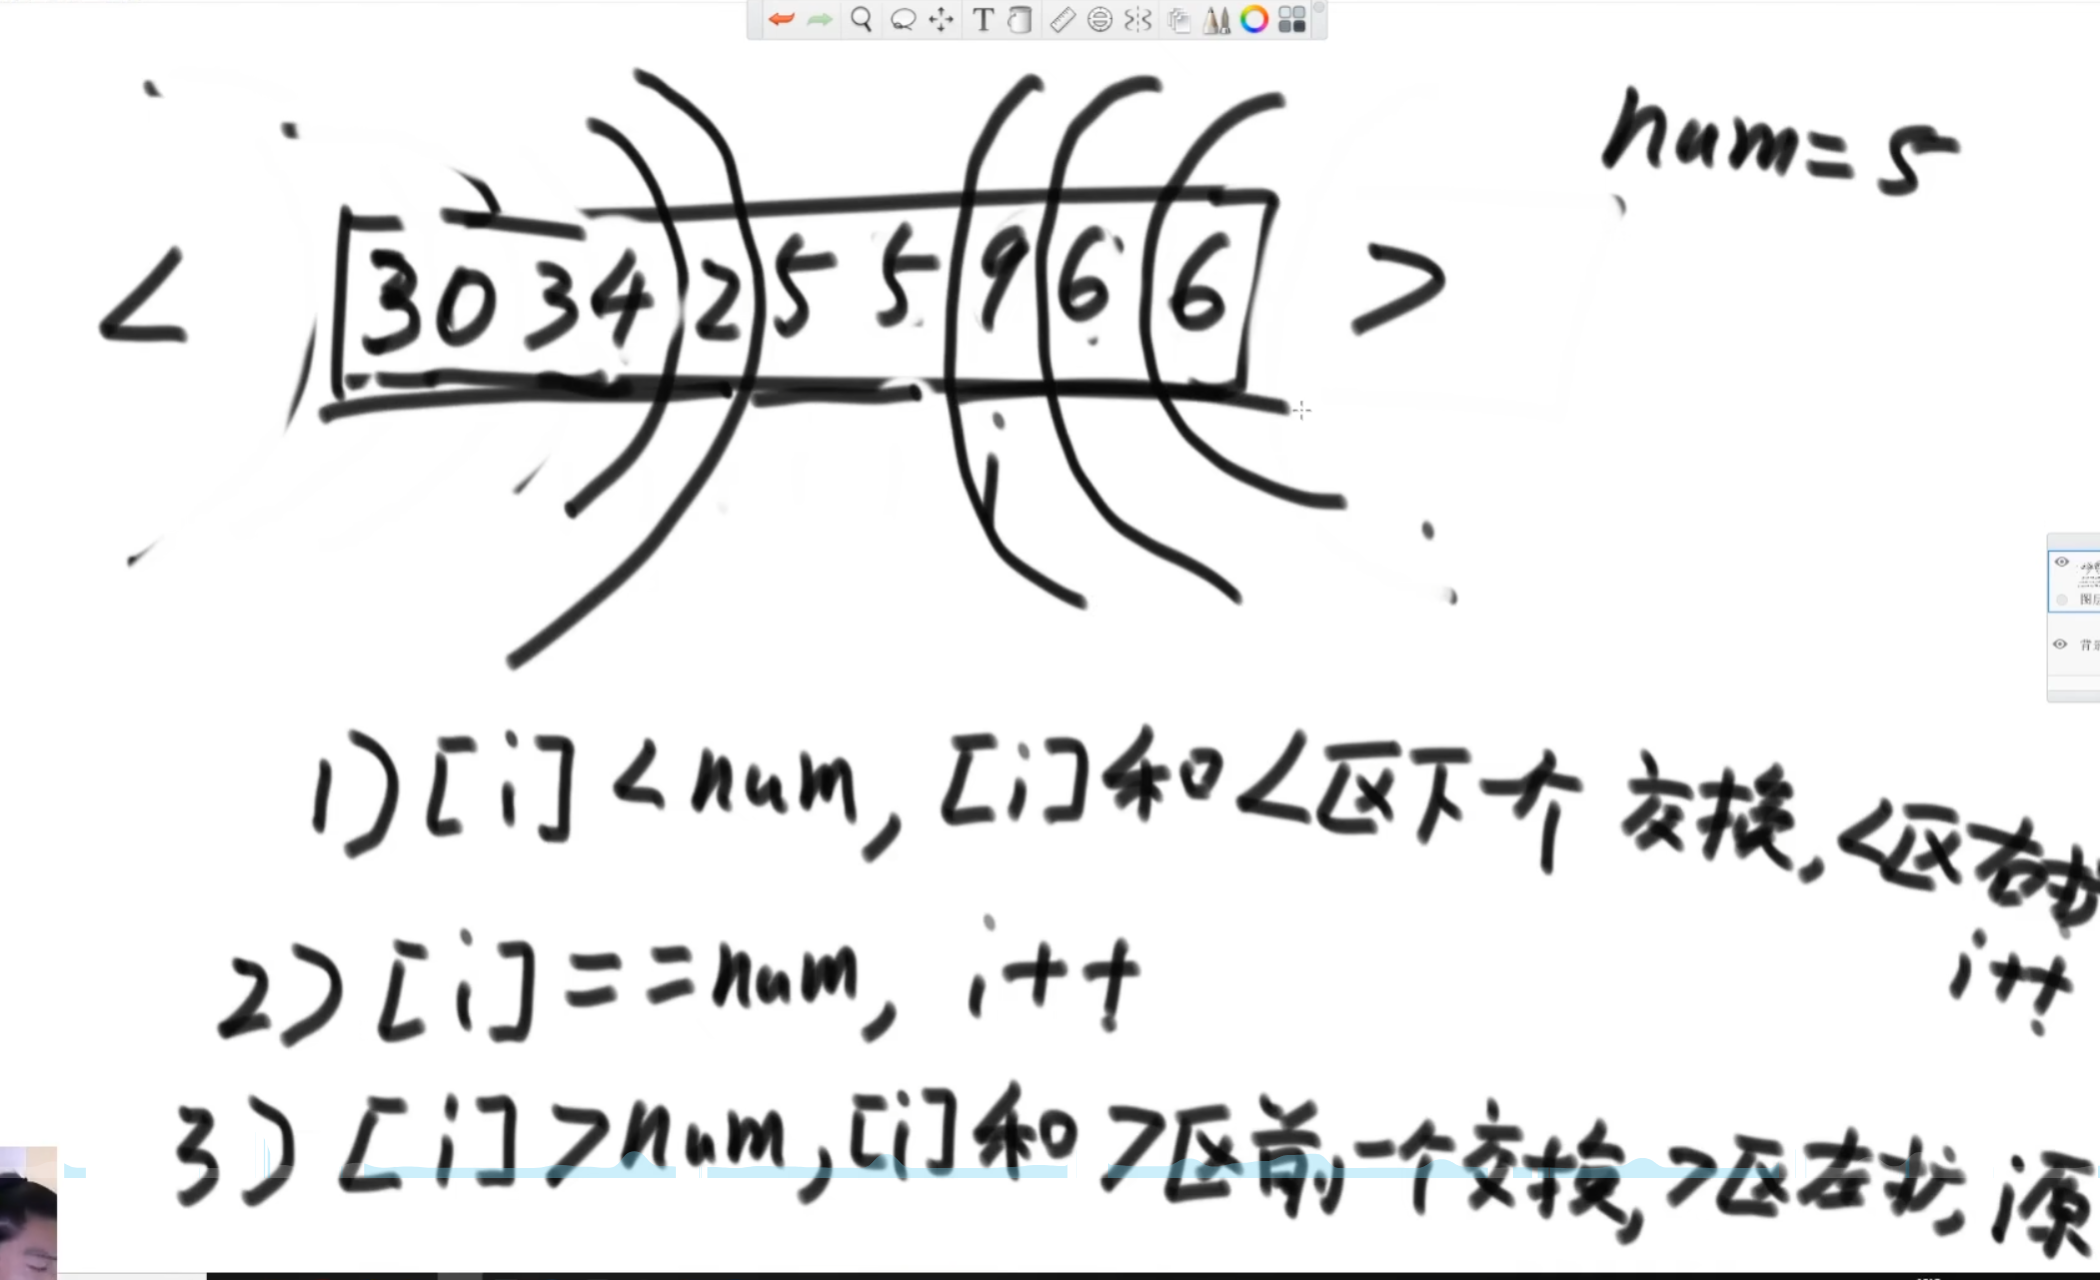 num=5
< 3 0 3 4 2 5 5 9 6 6 >
i
1) [i] < num, [i]和<区下一个交换, <区右扩
i++
2) [i] == num, i++
3) [i] > num, [i]和>区前一个交换, >区左扩, i原